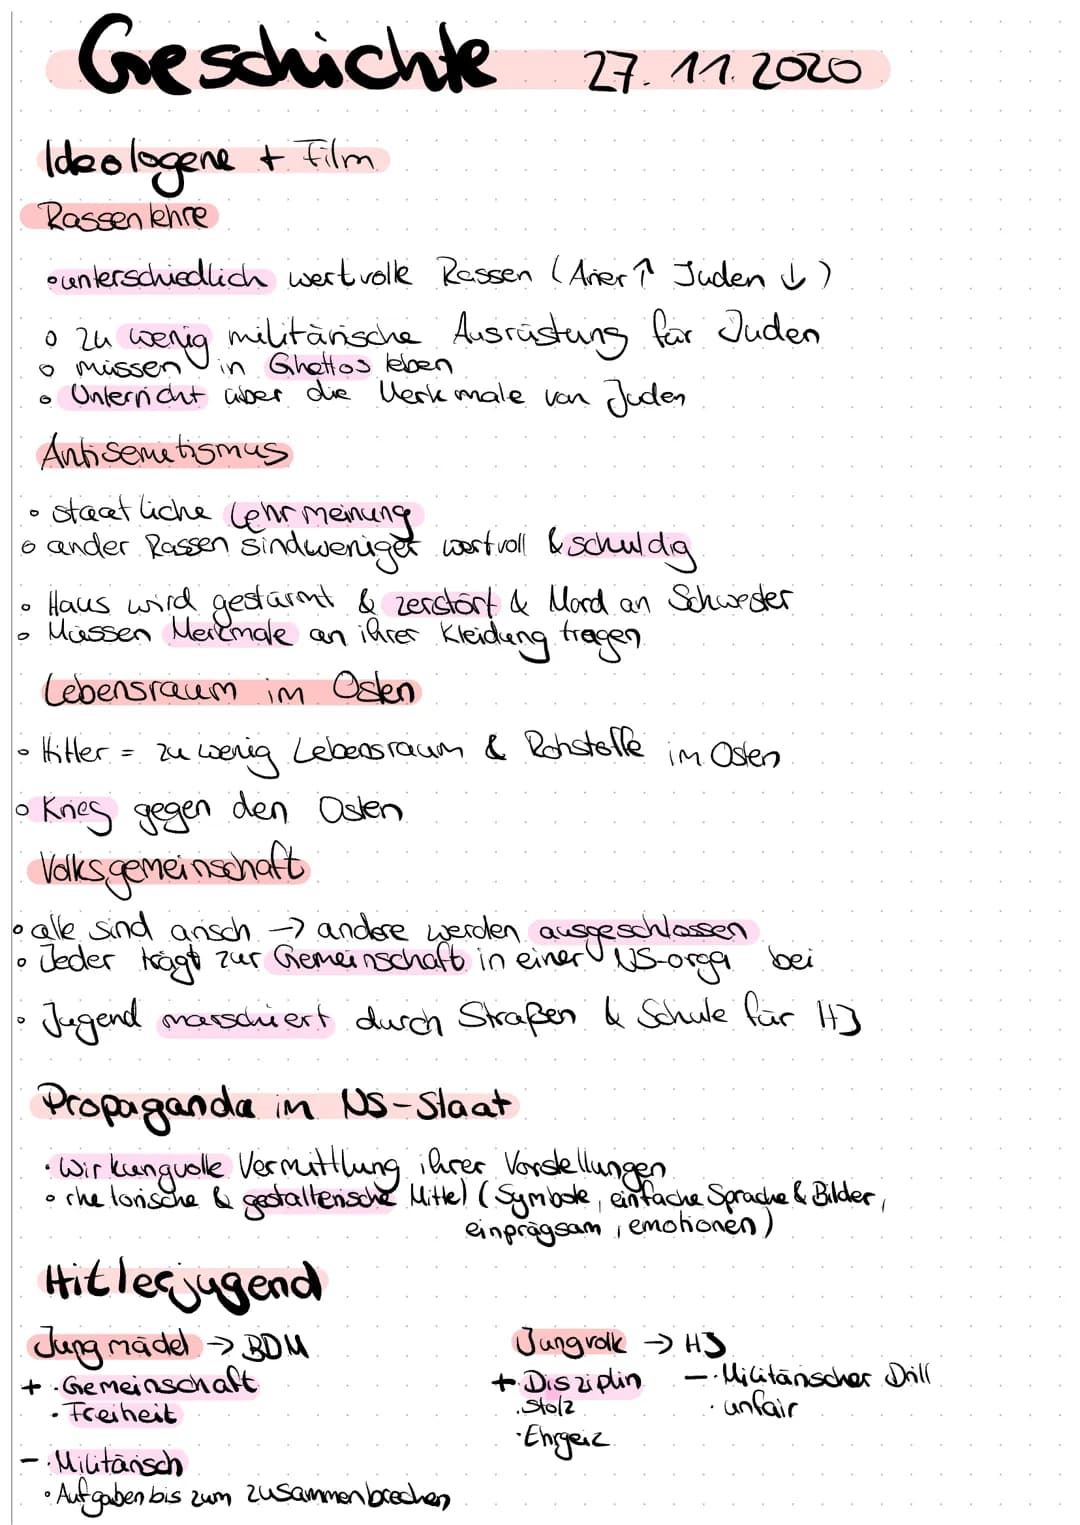 Geschichte 27.11.2020
Ideologene + Film
Rassenlehre
• unterschiedlich wertvolle Rassen (Arier ↑ Juden ↓)
◦ zu wenig militärische Ausrüstung für Juden
◦ müssen in Ghettos leben
• Unterricht über die Merkmale von Juden
Antisemitismus
• staatliche Lehrmeinung
◦ ander Rassen sind weniger wertvoll & schuldig
• Haus wird gestürmt & zerstört & Mord an Schwester
◦ Müssen Merkmale an ihrer Kleidung tragen
Lebensraum im Osten
• Hitler = zu wenig Lebensraum & Rohstoffe im Osten
◦ Krieg gegen den Osten
Volksgemeinschaft
• alle sind arisch → andere werden ausgeschlossen
• Jeder trägt zur Gemeinschaft in einer NS-orga bei
• Jugend marschiert durch Straßen & Schule für HJ
Propaganda im NS-Staat
• Wirkungvolle Vermittlung ihrer Vorstellungen
• rhetorische & gestalterische Mittel (Symbole, einfache Sprache & Bilder,
einprägsam, emotionen)
Hitlerjugend
Jungmädel → BDM Jungvolk → HJ
+ • Gemeinschaft + Disziplin - • Militärischer Drill
• Freiheit • Stolz • unfair
• Ehrgeiz
- • Militärisch
• Aufgaben bis zum zusammenbrechen